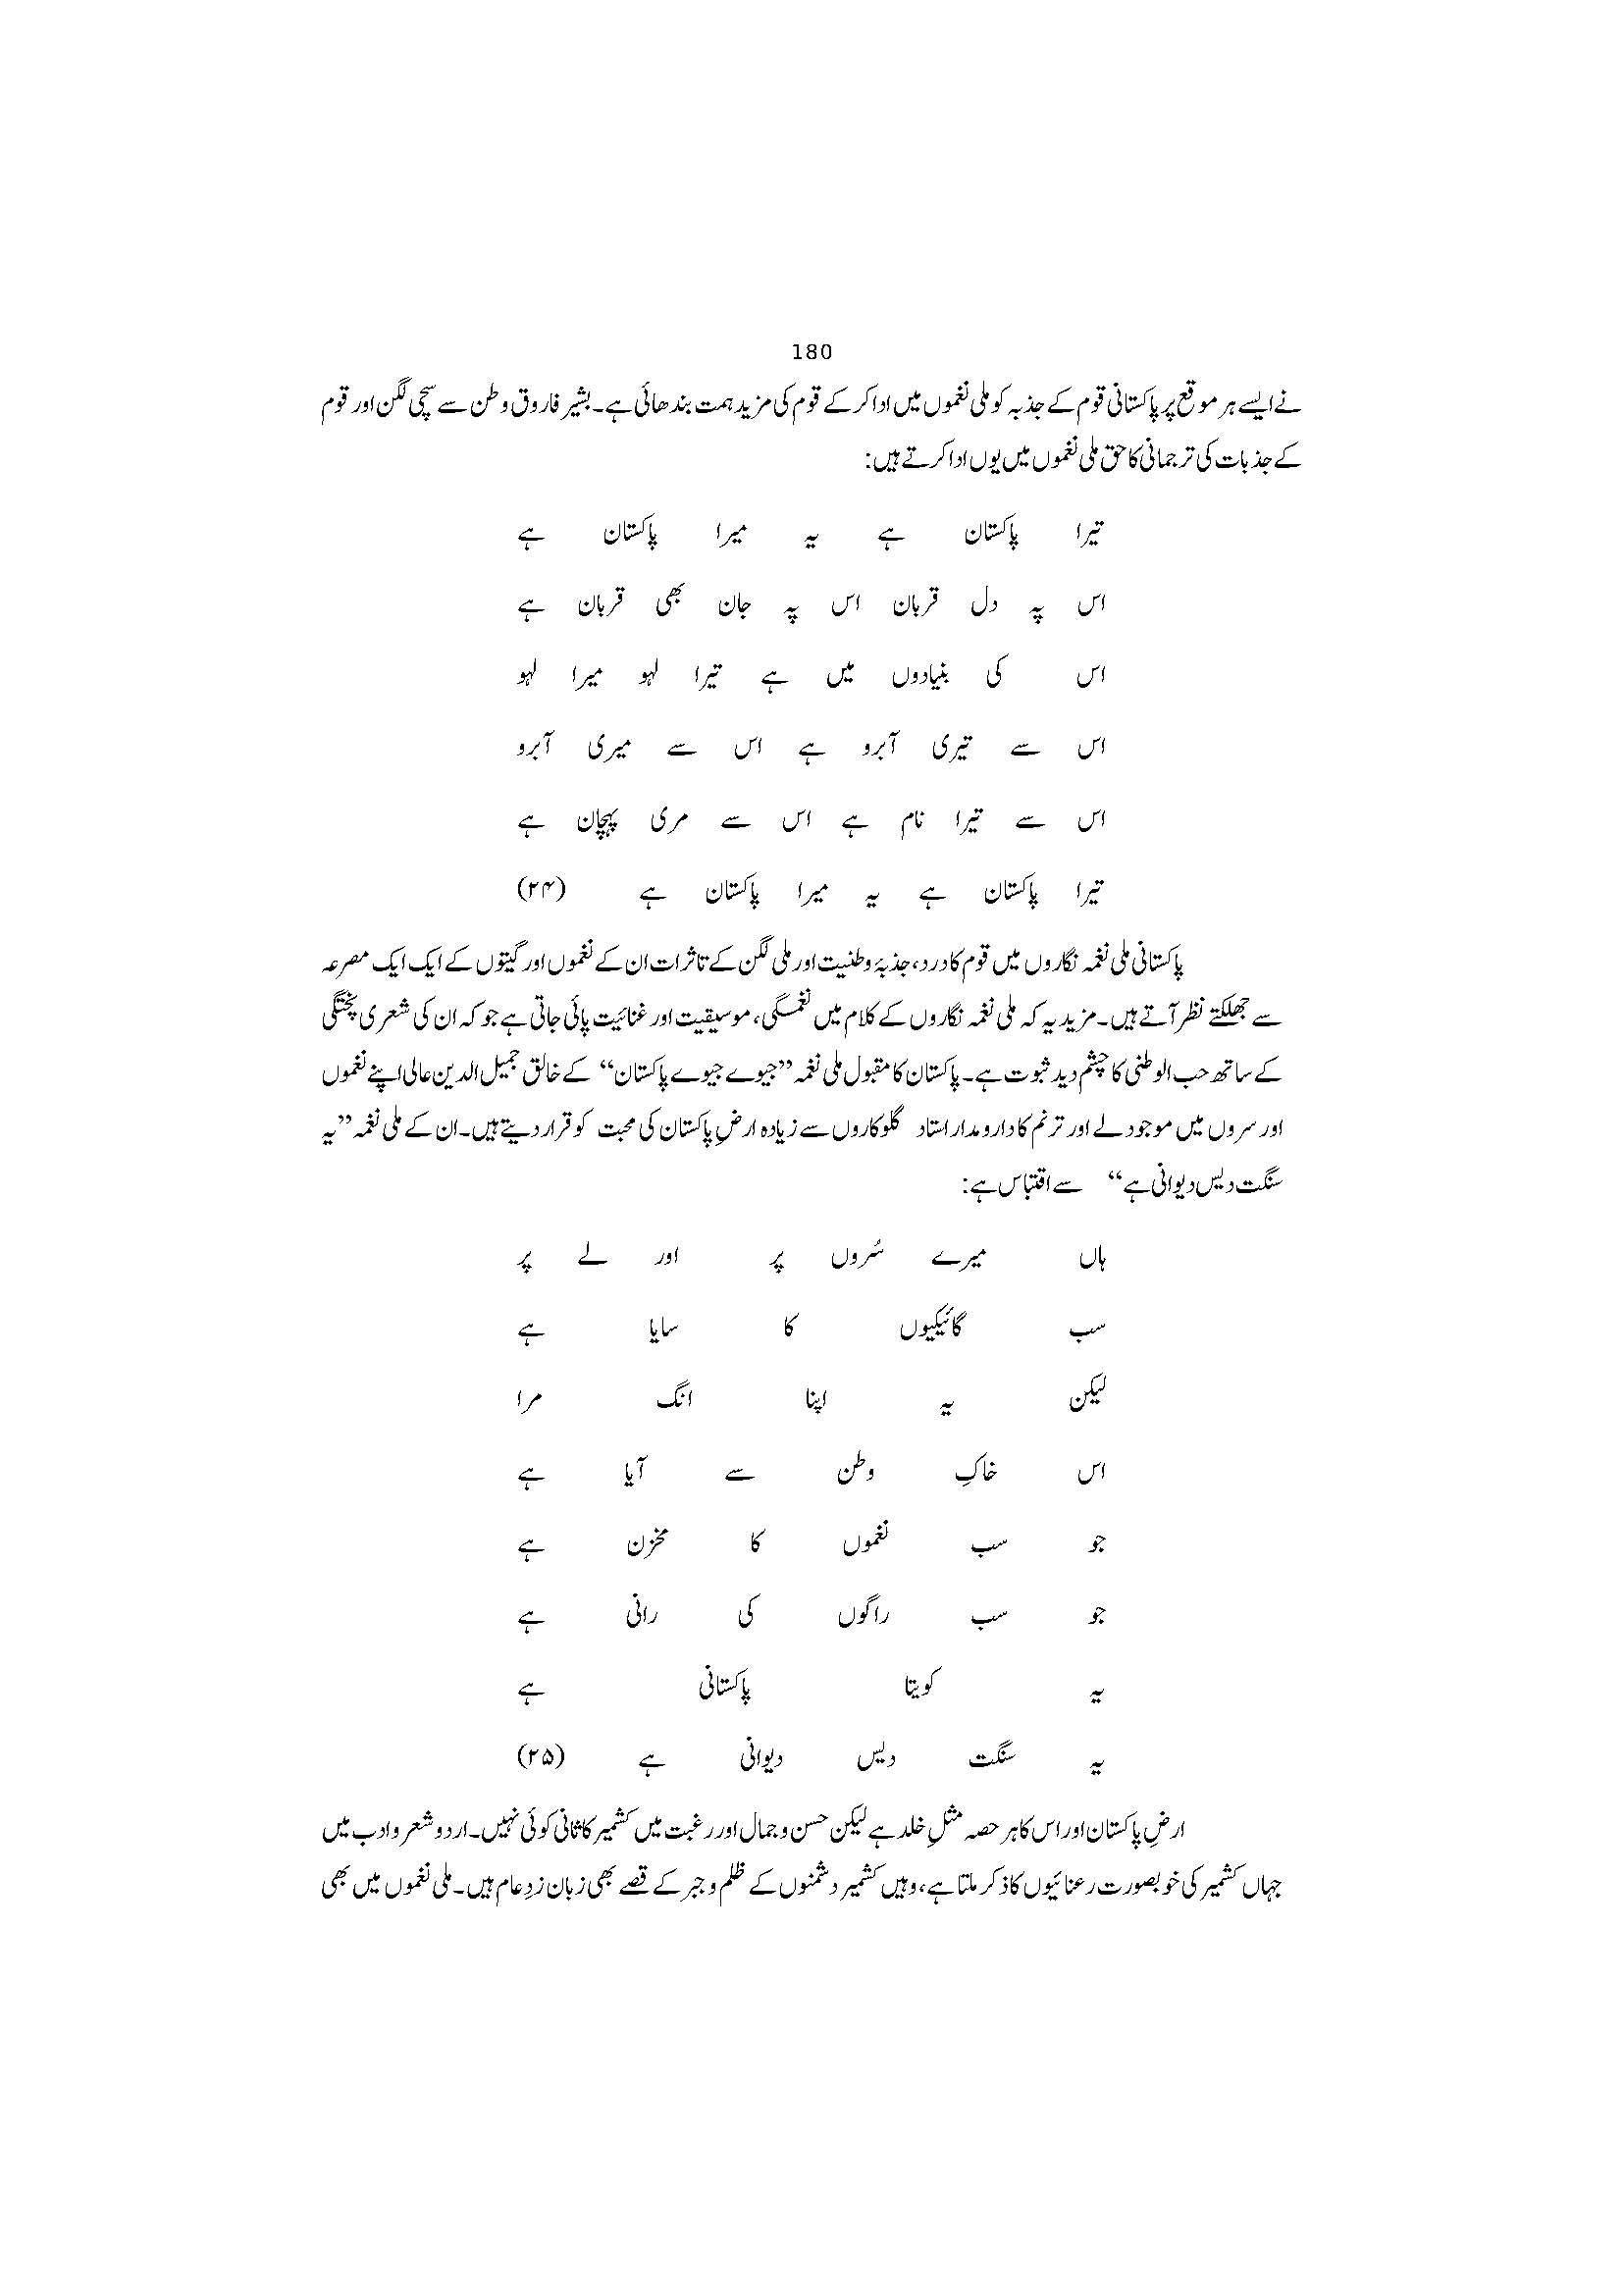 180
نے ایسے ہر موقع پر پاکستانی قوم کے جذبہ کو ملی نغموں میں ادا کر کے قوم کی مزید ہمت بندھائی ہے۔ بشیر فاروق وطن سے سچی لگن اور قوم
کے جذبات کی ترجمانی کا حق ملی نغموں میں یوں ادا کرتے ہیں:
تیرا پاکستان ہے یہ میرا پاکستان ہے
اس پہ دل قربان اس پہ جان بھی قربان ہے
اس کی بنیادوں میں ہے تیرا لہو میرا لہو
اس سے تیری آبرو ہے اس سے میری آبرو
اس سے تیرا نام ہے اس سے مری پہچان ہے
تیرا پاکستان ہے یہ میرا پاکستان ہے (۲۴)
پاکستانی ملی نغمہ نگاروں میں قوم کا درد، جذبۂ وطنیت اور ملی لگن کے تاثرات ان کے نغموں اور گیتوں کے ایک ایک مصرعہ
سے جھلکتے نظر آتے ہیں۔ مزید یہ کہ ملی نغمہ نگاروں کے کلام میں نغمگی، موسیقیت اور غنائیت پائی جاتی ہے جو کہ ان کی شعری پختگی
کے ساتھ حب الوطنی کا چشم دید ثبوت ہے۔ پاکستان کا مقبول ملی نغمہ ”جیوے جیوے پاکستان“ کے خالق جمیل الدین عالی اپنے نغموں
اور سروں میں موجود لے اور ترنم کا دارومدار استاد گلوکاروں سے زیادہ ارضِ پاکستان کی محبت کو قرار دیتے ہیں۔ ان کے ملی نغمہ ”یہ
سنگت دیس دیوانی ہے“ سے اقتباس ہے:
ہاں میرے سُروں پر اور لے پر
سب گائیکیوں کا سایا ہے
لیکن یہ اپنا انگ مرا
اس خاکِ وطن سے آیا ہے
جو سب نغموں کا مخزن ہے
جو سب راگوں کی رانی ہے
یہ کویتا پاکستانی ہے
یہ سنگت دیس دیوانی ہے (۲۵)
ارضِ پاکستان اور اس کا ہر حصہ مثلِ خلد ہے لیکن حسن و جمال اور رغبت میں کشمیر کا ثانی کوئی نہیں۔ اردو شعر و ادب میں
جہاں کشمیر کی خوبصورت رعنائیوں کا ذکر ملتا ہے، وہیں کشمیر دشمنوں کے ظلم و جبر کے قصے بھی زبان زدِ عام ہیں۔ ملی نغموں میں بھی